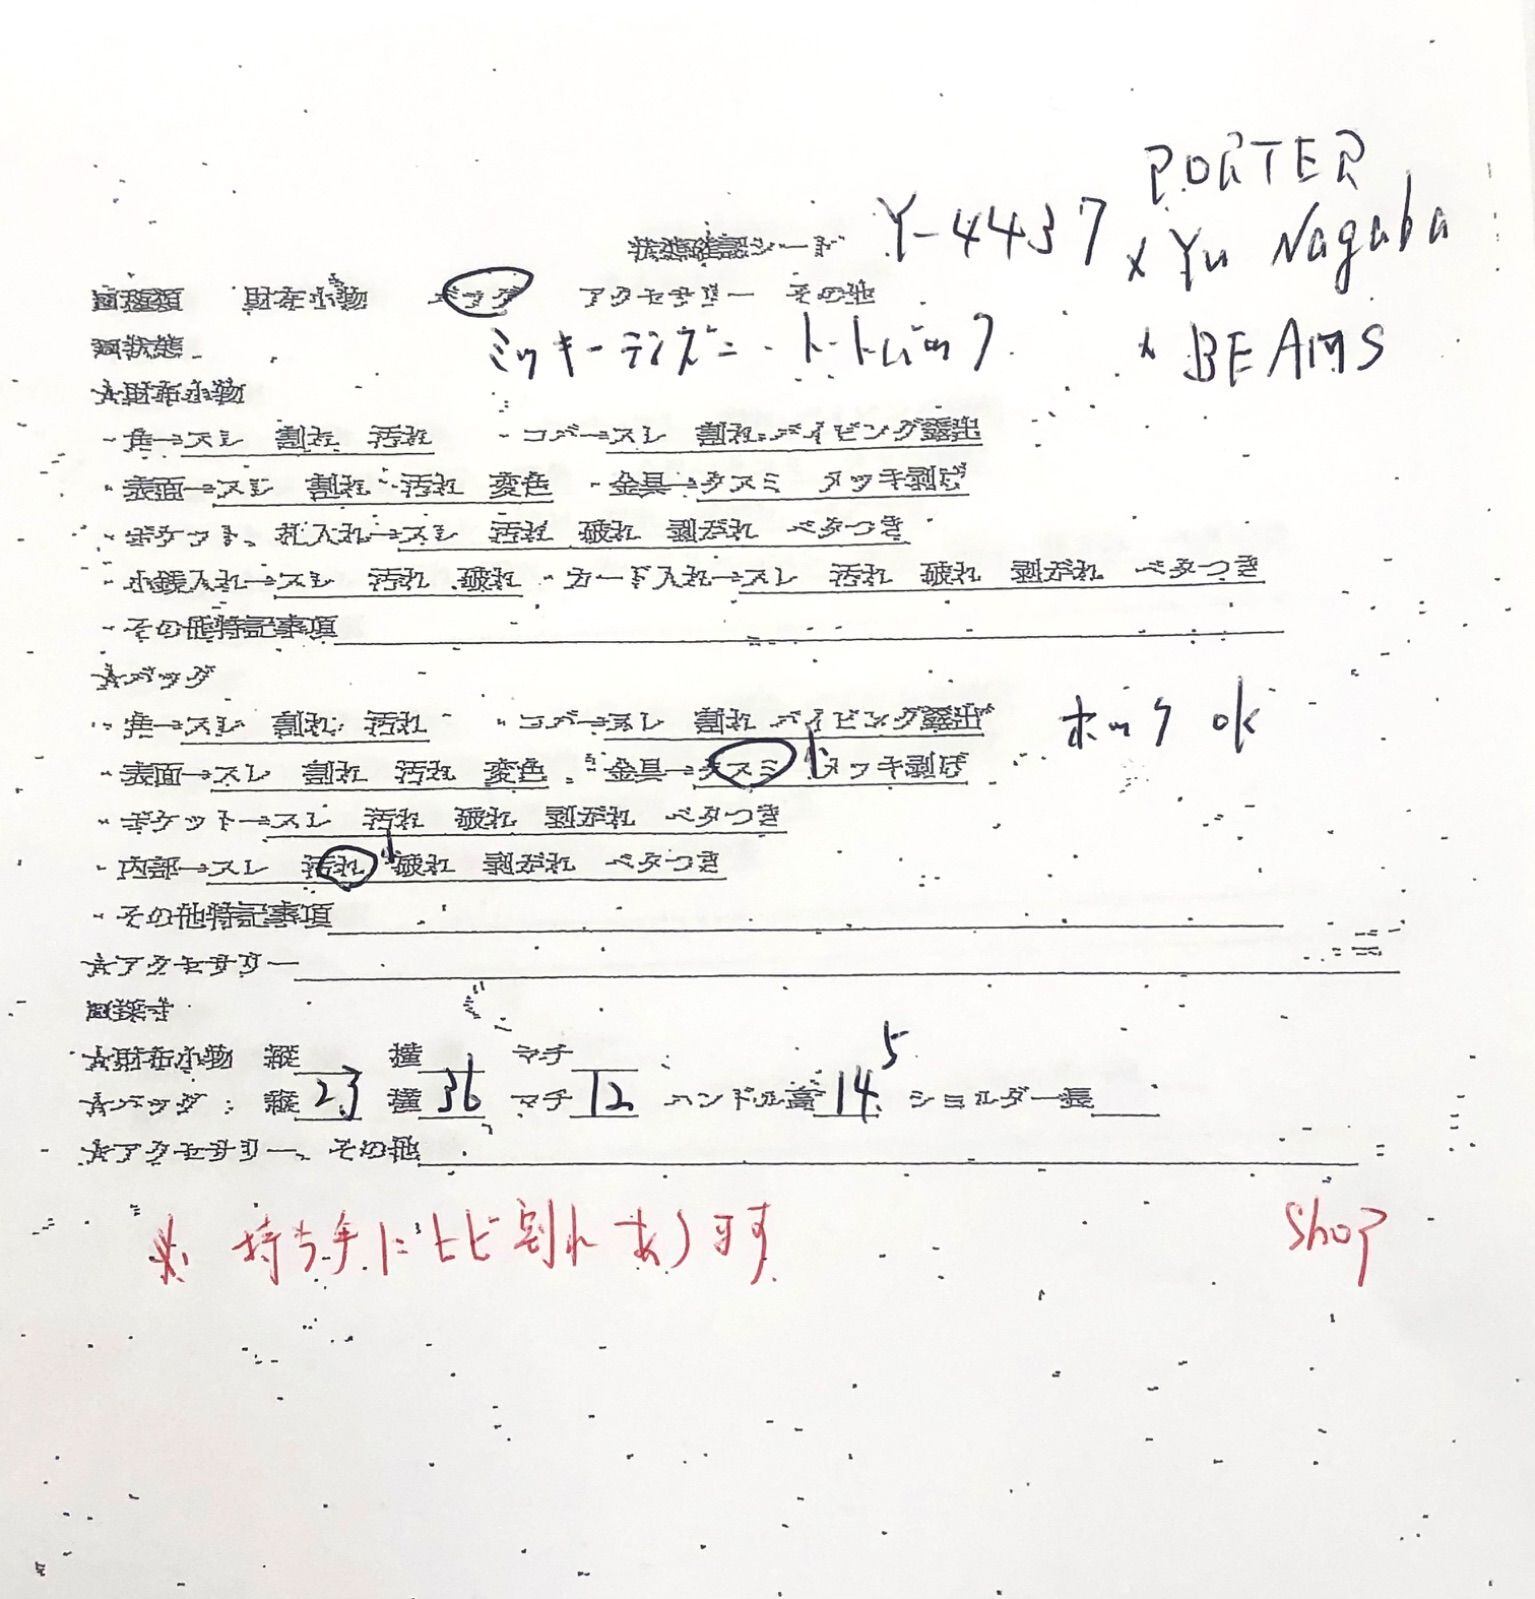 PORTER
状態確認シート Y-4437 × Yu Nagaba
■種類 財布小物 バッグ アクセサリー その他
ミッキーディズニー トートバッグ × BEAMS
■状態
★財布小物
・角→スレ 割れ 汚れ ・コバ→スレ 割れ パイピング露出
・表面→スレ 割れ 汚れ 変色 ・金具→クスミ メッキ剥げ
・ポケット、札入れ→スレ 汚れ 破れ 剥がれ ベタつき
・小銭入れ→スレ 汚れ 破れ ・カード入れ→スレ 汚れ 破れ 剥がれ ベタつき
・その他特記事項
★バッグ
・角→スレ 割れ 汚れ ・コバ→スレ 割れ パイピング露出 ホック ok
・表面→スレ 割れ 汚れ 変色 ・金具→クスミ 小 メッキ剥げ
・ポケット→スレ 汚れ 破れ 剥がれ ベタつき
・内部→スレ 汚れ 小 破れ 剥がれ ベタつき
・その他特記事項
★アクセサリー
■採寸
★財布小物 縦 横 マチ
★バッグ 縦 23 横 36 マチ 12 ハンドル高 14.5 ショルダー長
★アクセサリー、その他
※ 持ち手にヒビ割れあります shop